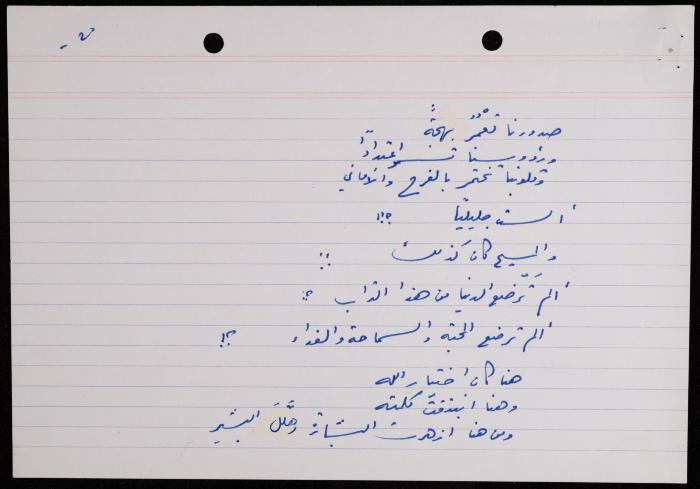 صدورنا تعمُر بهجةً
ورؤوسنا تسمو اعتدادًا
وقلوبنا تختمر بالفرح والأماني
ألست جليليًّا ؟!!
والمسيح كان كذلك !!
ألم ترضع الدنيا من هذا التراب ؟!
ألم ترضع المحبة والسماحة والفداء ؟!
هنا كان اختيار الله
وهنا انبثقت كلمته
ومن هنا ازهرت البشارة وهلّلَ البشير